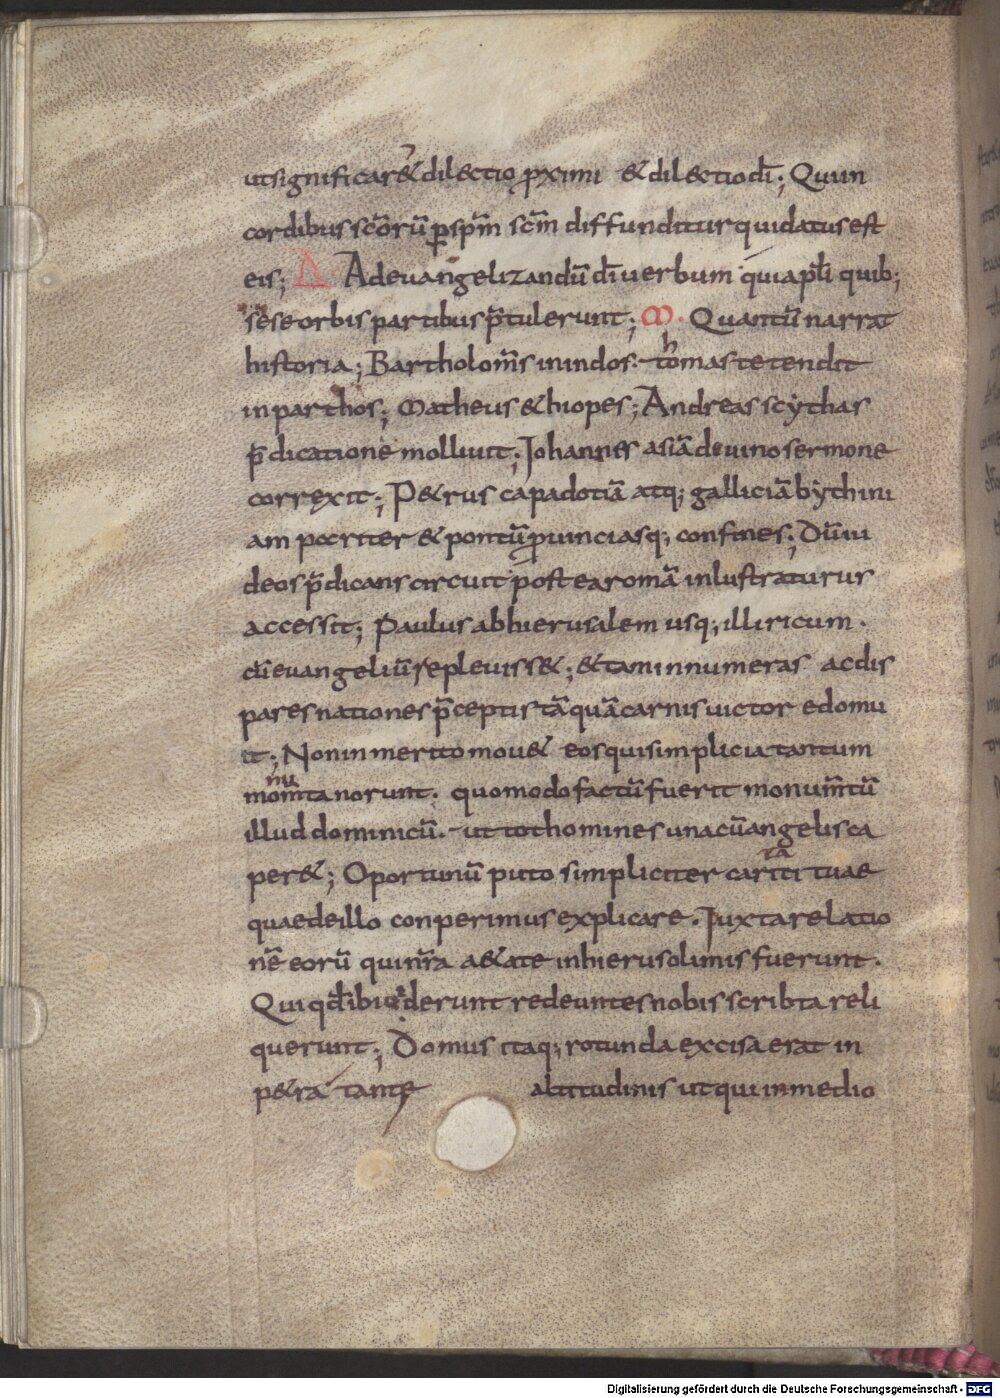 ut significar&dilectio p̄ximi &dilectio dī; Quun
cordibus sc̄orū p spm̄ scm̄ diffunditur qui datus est
eis; Δ Ad evangelizandū dī verbum qui apl̄i quib;
sese orbis partibus p̄tulerunt; M· Quantū narrat
historia; Bartholom̄s in indos· thomas tetendit
in parthos; Matheus &hiopes; Andreas scythas
p̄dicatione molliuit; Johannes asiā deuino sermone
correxit; P&rus capadotiā atq; galliciā bythini
am pocriter & pontū prouinciasq; confines; Dū iu
deos p̄dicans circuit postea romā inlustraturus
accessit; Paulus ab hierusalem usq; illiricum·
cū evangeliū repleuiss&; &tam innumeras ac dis
pares nationes p̄ceptis tā quā carnis uictor edomu
it; Non inmerito mou& eos qui simplicia tantum
nu
mom̄ta norunt· quomodo factū fuerit monum̄tū
illud dominicū· ut tot homines una cū angelis ca
per&; Oportunū puto simpliciter caritati tuae
quae de illo conperimus explicare· Juxta relatio
nē eorū qui nr̄a a&ate in hierusolimis fuerunt·
Qui qd̄ ibi uiderunt redeuntes nobis scribta reli
querunt; Domus itaq; rotunda excisa erat in
p&ra tante altitudinis ut qui in medio
Digitalisierung gefördert durch die Deutsche Forschungsgemeinschaft - DFG